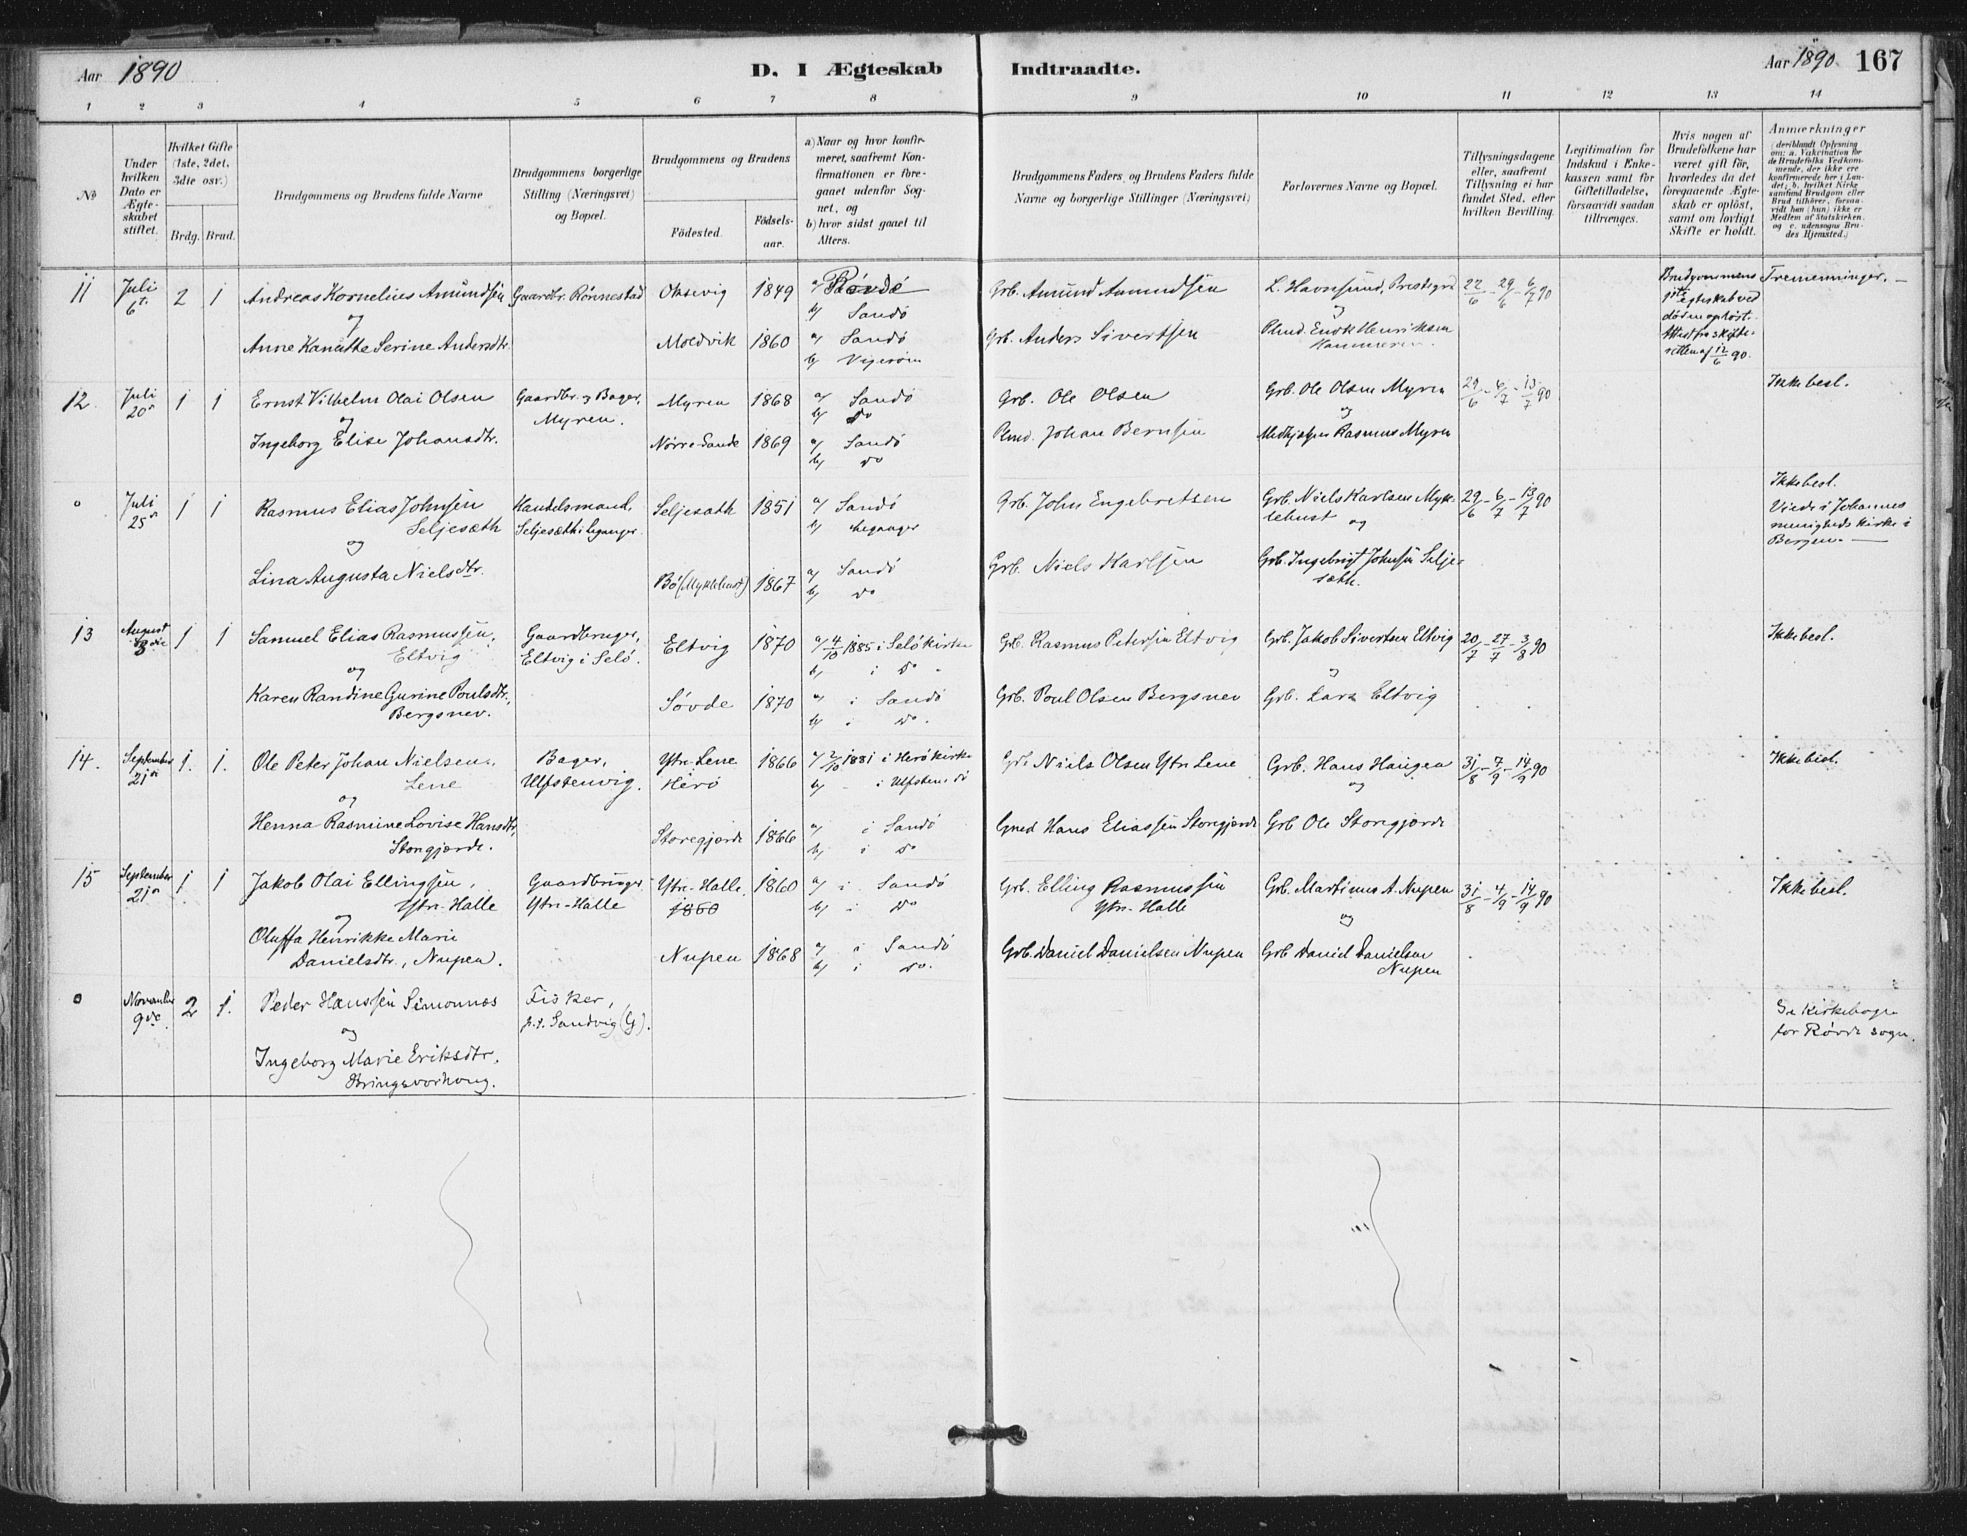 Aar 1890
D. I Ægteskab Indtraadte.
Aar 1890. 167
1 2 3 4 5 6 7 8 9 10 11 12 13 14
No
Under hvilken Dato er Ægteskabet stiftet.
Hvilket Gifte (1ste, 2det, 3die osv.)
Brdg. Brud.
Brudgommens og Brudens fulde Navne
Brudgommens borgerlige Stilling (Næringsvei) og Bopæl.
Brudgommens og Brudens
Fødested.
Fødselsaar.
a) Naar og hvor konfirmeret, saafremt Konfirmationen er foregaaet udenfor Sognet, og
b) hvor sidst gaaet til Alters.
Brudgommens Faders, og Brudens Faders fulde Navne og borgerlige Stillinger (Næringsvei)
Forlovernes Navne og Bopæl.
Tillysningsdagene eller, saafremt Tillysning ei har fundet Sted, efter hvilken Bevilling.
Legitimation for Indskud i Enkekassen samt for Giftetilladelse, forsaavidt saadan tiltrænges.
Hvis nogen af Brudefolkene har været gift før, hvorledes da det foregaaende Ægteskab er opløst, samt om lovligt Skifte er holdt.
Anmærkninger (deriblandt Oplysning om: a. Vakcination for de Brudefolks Vedkommende, der ikke ere konfirmerede her i Landet; b. hvilket Kirkesamfund Brudgom eller Brud tilhører, forsaavidt han (hun) ikke er Medlem af Statskirken, og c. udensogns Brudes Hjemsted.)
11 Juli 6te 2 1 Andreas Kornelius Amundsen Gaardbr. Rønnestad Oksevig 1849 a) Rovde
b) Sandö
Grb. Amund Amundsen L. Havnsund, Prestegrd 22/6 - 29/6 - 6/7 90
Brudgommens 1ste egteskab ved døden opløst. Attest fra skifteretten af 12/6 90.
Tremenninger. —
og
Anne Kanutte Serine Andersdtr. Moldvik 1860 a) Sandö
b) Vigerøm
Grb. Anders Sivertsen og Plmd. Enok Henriksen
12 Juli 20de 1 1 Ernst Vilhelm Olai Olsen Gaardbr. og Bager, Myren. Myren 1868 a) Sandö
b) do
Grb. Ole Olsen Grb. Ole Olsen Myren 29/6 - 6/7 - 13/7 90 Ikke besl.
og
Ingeborg Elise Johansdtr. Nørre-Sande 1869 a) Sandö
b) do
Plmd. Johan Bernsen og Medhjelper Rasmus Myren
o Juli 25de 1 1 Rasmus Elias Johnsen Seljesæth Handelsmand, Seljesæth i Leganger Seljesæth 1851 a) Sandö
b) Leganger
Grb. John Engebretsen Grb. Niels Karlsen Myklebust og 29/6 - 6/7 - 13/7 90
Ikke besl.
Viede i Johannes menigheds kirke i Bergen. —
og
Lina Augusta Nielsdtr. Bö (Myklebust) 1867 a) Sandö
b) do
Grb. Niels Karlsen Grb. Ingebrigt Johnsen Seljesæth.
13 August 3die 1 1 Samuel Elias Rasmussen, Eltvig Gaardbruger, Eltvig i Selö. Eltvig 1870 a) 4/10 1885 i Selö kirke
b) i do
Grb. Rasmus Petersen Eltvig Grb. Jakob Sivertsen Eltvig 20/7 - 27/7 - 3/8 90 Ikke besl.
og
Karen Randine Gurine Poulsdtr., Bergsnev. Søvde 1870 a) i Sandö
b) i do.
Grb. Poul Olsen Bergsnev og Grb. Lars Eltvig
14. September 21de 1. 1. Ole Peter Johan Nielsen, Lene Bager, Ulfstenvig. Ytre-Lene Herö 1866 a) 2/10 1881 i Herö kirke
b) i Ulfsten do
Grb Niels Olsen Ytre Lene Grb. Hans Haugen og 31/8 - 7/9 - 14/9 90 Ikke besl.
og
Henna Rasmine Lovise Hansdtr. Storegjerde. Storegjerde 1866 a) i Sandö
b) i do
Gmd Hans Eliassen Storegjerde Grb Ole Storegjerde
15 September 21de 1 1 Jakob Olai Ellingsen, Ytre-Halle Gaardbruger Ytre-Halle Ytre-Halle 1860 1860 a) i Sandö
b) i do
Grb. Elling Rasmussen Ytre-Halle Grb. Martinus A. Nupen og 31/8 - 4/9 - 14/9 90 Ikke besl.
og
Oluffa Henrikke Marie Danielsdtr., Nupen. Nupen 1868 a) i Sandö
b) i do.
Grb. Daniel Danielsen Nupen Grb Daniel Danielsen Nupen
o November 9de 2 1. Peder Hanssen Simonnæs Fisker, p.t. Sandvig (G).
Se Kirkebogen for Røvde sogn.
og
Ingeborg Marie Eriksdtr. Bringsvorhoug.